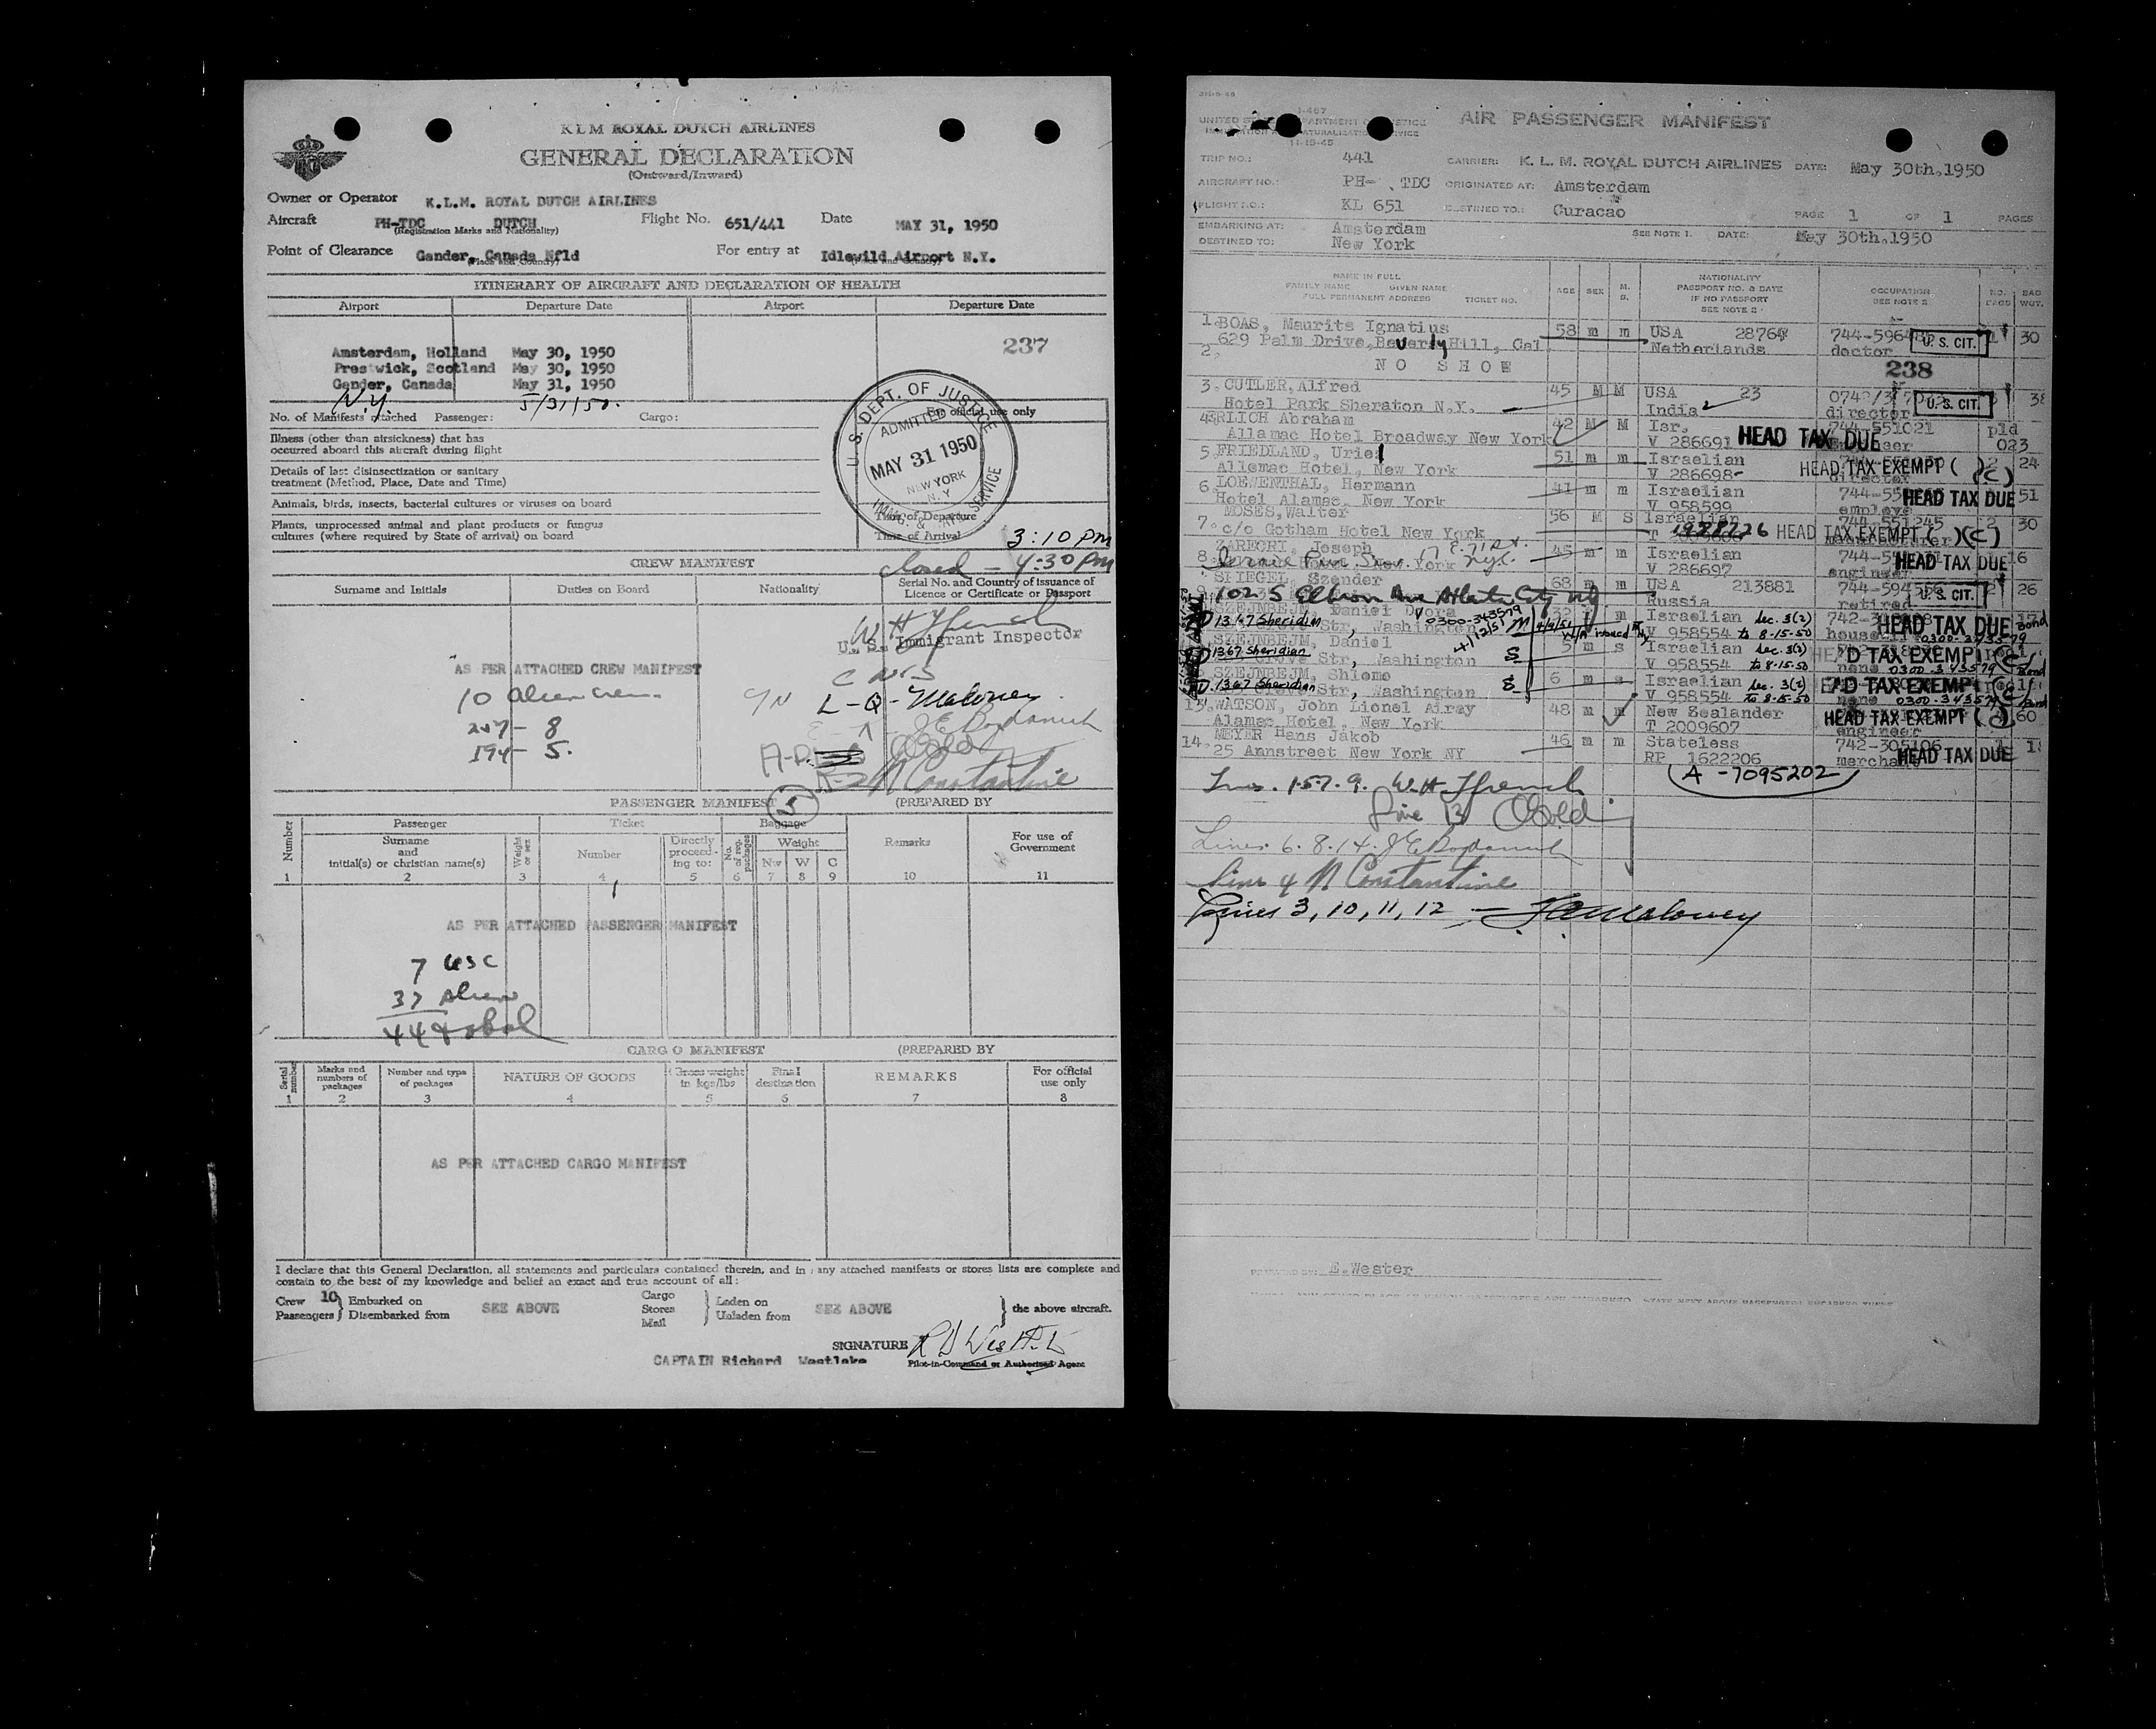 KLM ROYAL DUTCH AIRLINES
GENERAL DECLARATION
(Outward/Inward)
Owner or Operator K.L.M. ROYAL DUTCH AIRLINES
Aircraft PH-TDC DUTCH Flight No. 651/441 Date MAY 31, 1950
(Registration Marks and Nationality)
Point of Clearance Gander, Canada Nfld For entry at Idlewild Airport N.Y.
(Place and Country)
ITINERARY OF AIRCRAFT AND DECLARATION OF HEALTH
Airport Departure Date Airport Departure Date
237
Amsterdam, Holland May 30, 1950
Prestwick, Scotland May 30, 1950
Gander, Canada May 31, 1950
N.Y. 5/31/50.
No. of Manifests attached Passenger: Cargo: For official use only
Illness (other than airsickness) that has
occurred aboard this aircraft during flight
Details of last disinsectization or sanitary
treatment (Method, Place, Date and Time)
Animals, birds, insects, bacterial cultures or viruses on board
Plants, unprocessed animal and plant products or fungus
cultures (where required by State of arrival) on board
U.S. DEPT. OF JUSTICE
ADMITTED
MAY 31 1950
NEW YORK
N.Y.
IMMG. & NAT. SERVICE
Time of Departure
Time of Arrival 3:10 PM
closed - 4:30 PM
CREW MANIFEST
Surname and Initials Duties on Board Nationality Serial No. and Country of issuance of
Licence or Certificate or Passport
W H Ffrench
U.S. Immigrant Inspector
AS PER ATTACHED CREW MANIFEST
10 alien crew
L-Q - Maloney
257 - 8
194 - 5.
N Constantine
5
PASSENGER MANIFEST (PREPARED BY
Number Passenger Ticket Baggage Remarks For use of
Government
Surname
and
initial(s) or christian name(s) Weight or sex Number Directly
proceed-
ing to: No. of reg. packages Weight
Nw W C
1 2 3 4 5 6 7 8 9 10 11
AS PER ATTACHED PASSENGER MANIFEST
7 USC
37 Alien
44 total
CARGO MANIFEST (PREPARED BY
Serial number Marks and
numbers of
packages Number and type
of packages NATURE OF GOODS Gross weight
in kgs/lbs Final
destination REMARKS For official
use only
1 2 3 4 5 6 7 8
AS PER ATTACHED CARGO MANIFEST
I declare that this General Declaration, all statements and particulars contained therein, and in any attached manifests or stores lists are complete and
contain to the best of my knowledge and belief an exact and true account of all:
Crew 10 Embarked on SEE ABOVE Cargo Laden on SEE ABOVE the above aircraft.
Passengers Disembarked from Stores Unladen from
Mail
SIGNATURE
CAPTAIN Richard Westlake Pilot-in-Command or Authorised Agent
I-467
UNITED STATES DEPARTMENT OF JUSTICE
IMMIGRATION NATURALIZATION SERVICE
11-15-45
AIR PASSENGER MANIFEST
TRIP NO.: 441 CARRIER: K. L. M. ROYAL DUTCH AIRLINES DATE: May 30th.1950
AIRCRAFT NO.: PH- TDC ORIGINATED AT: Amsterdam
FLIGHT NO.: KL 651 DESTINED TO.: Curacao PAGE 1 OF 1 PAGES
EMBARKING AT: Amsterdam SEE NOTE 1. DATE: May 30th.1950
DESTINED TO: New York
NAME IN FULL
FAMILY NAME GIVEN NAME
FULL PERMANENT ADDRESS TICKET NO. AGE SEX M. S. NATIONALITY
PASSPORT NO. & DATE
IF NO PASSPORT
SEE NOTE 2 OCCUPATION
SEE NOTE 2 NO. BAGS BAG WGT.
1. BOAS, Maurits Ignatius 58 m m USA U. S. CIT. 1 30
629 Palm Drive, Beverly Hill, Cal. Netherlands doctor
2. NO SHOW 238
3. CUTLER, Alfred 45 M M USA 23 U. S. CIT.
Hotel Park Sheraton N.Y. India director
4. ERLICH Abraham 42 M M Isr. 744-551021 pld
Allamac Hotel Broadway New York V 286691 HEAD TAX DUE 023
5. FRIEDLAND, Uriel 51 m m Israelian 2 24
Allamac Hotel, New York V 286698 director HEAD TAX EXEMPT ( ) (C)
6. LOEWENTHAL, Hermann 41 m m Israelian HEAD TAX DUE 51
Hotel Alamac, New York V 958599 employe
MOSES, Walter 56 M S Israelian 744-551245 2 30
7. c/o Gotham Hotel New York HEAD TAX EXEMPT ( ) (C)
ZARECHI, Joseph 17 E. 71 st. 45 m m Israelian HEAD TAX DUE 16
8. New York NYC. V 286697 engineer
SPIEGEL, Szender 68 m m USA 213881 U. S. CIT. 2 26
102 S Elberon Ave Atlantic City NJ Russia retired
SZEJNBEJM, Daniel Dvora 32 m Israelian Sec. 3(2) HEAD TAX DUE Bond
1367 Sheridan Str, Washington 0300-343579 V 958554 to 8-15-50
SZEJNBEJM, Daniel 5 m s Israelian Sec. 3(2) HEAD TAX EXEMPT (C)
1367 Sheridan Grove Str, Washington S V 958554 to 8-15-50 none 0300-343579 Bond
SZEJNBEJM, Shlomo 6 m s Israelian Sec. 3(2) HEAD TAX EXEMPT (C)
1367 Sheridan Str, Washington S V 958554 to 8-15-50 none 0300-343579 Bond
13. WATSON, John Lionel Airey 48 m m New Zealander 60
Alamac Hotel, New York T 2009607 engineer HEAD TAX EXEMPT ( )
14. MEYER Hans Jakob 46 m m Stateless 742-305106
25 Annstreet New York NY RP 1622206 merchant HEAD TAX DUE
A -7095202
Lines. 1.5.7.9. W.H. Ffrench
Line 13
Lines. 6.8.14.
Line 4 N Constantine
Lines 3, 10, 11, 12 - Maloney
PREPARED BY: E.Wester